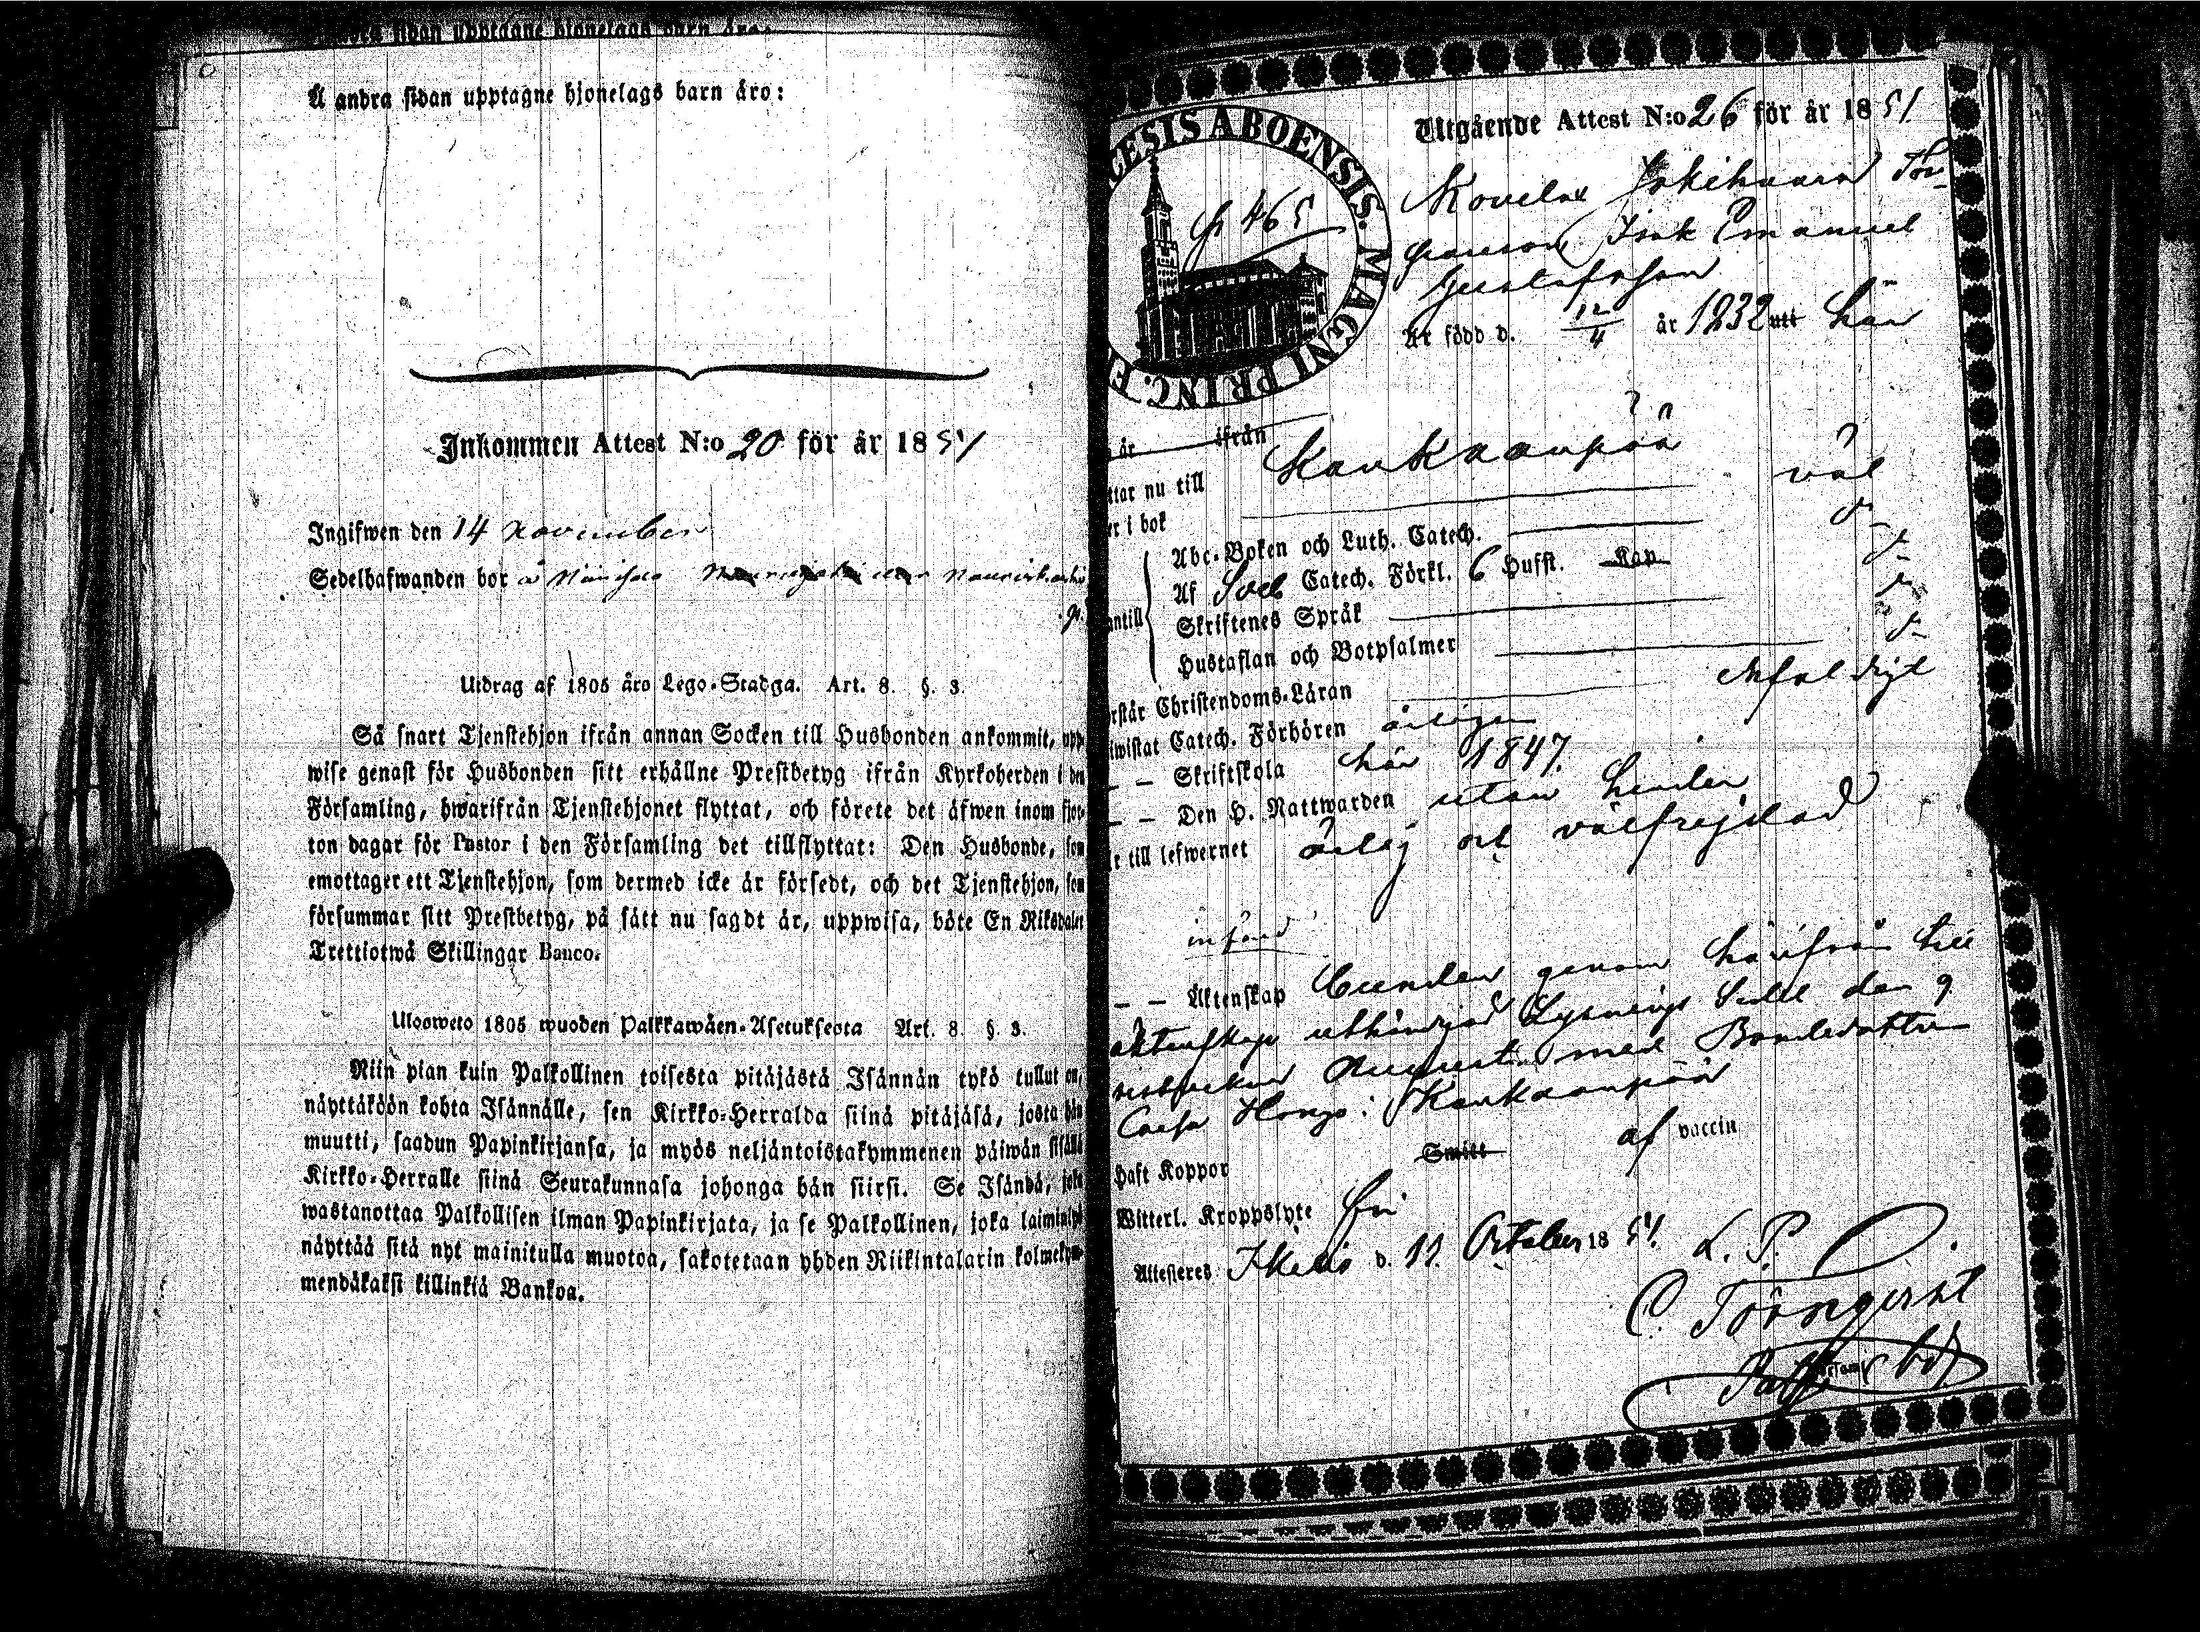 Å andra sidan upptagne hjonelags barn äro:
Inkommen Attest N:o 20 för år 1851
Ingifwen den 14 November
Sedelhafwanden bor
Utdrag af 1805 års Lego-Stadga. Art. 8. §. 3.
Så snart Tjenstehjon ifrån annan Socken till Husbonden ankommit, upp-
wise genast för Husbonden sitt erhållne Prestbetyg ifrån Kyrkoherden i den
Församling, hwarifrån Tjenstehjonet flyttat, och förete det äfwen inom fjor-
ton dagar för Pastor i den Församling det tillflyttat: Den Husbonde, som
emottager ett Tjenstehjon, som dermed icke är försedt, och det Tjenstehjon, som
försummar sitt Prestbetyg, på sätt nu sagdt är, uppwisa, böte En Riksdaler
Trettiotwå Skillingar Banco.
Ulosweto 1805 wuoden Palkkawäen-Asetuksesta Art. 8. §. 3.
Niin pian kuin Palkollinen toisesta pitäjästä Isännän tykö tullut on,
näyttäköön kohta Isännälle, sen Kirkko-Herralda siinä pitäjäsä, josta hän
muutti, saadun Papinkirjansa, ja myös neljäntoistakymmenen päiwän sisällä
Kirkko-Herralle siinä Seurakunnasa johonga hän siirsi. Se Isändä, joka
wastanottaa Palkollisen ilman Papinkirjata, ja se Palkollinen, joka laiminlyö
näyttää sitä nyt mainitulla muotoa, sakotetaan yhden Riikintalarin kolmekym-
mendäkaksi killinkiä Bankoa.
CESIS ABOENSIS. MAGNI PRINC. F
p 465
Utgående Attest N:o 26 för år 1851
Kovelax Jokihaara Tor-
pareson Isak Emanuel
Gustafsson
Är född d. 12/4 år 1832 utt här
år ifrån
ttar nu till Kankaanpää
er i bok väl
Abc-Boken och Luth. Catech. d:o
Af Sveb Catech. Förkl. 6 Hufst. Kap d:o
antill Skriftenes Språk d:o
Hustaflan och Botpsalmer d:o
rstår Christendoms-Läran enfaldigt
iwistat Catech. Förhören årligen
— — Skriftskola här 1847.
— — Den H. Nattwarden utan hinder
r till lefwernet ärlig och välfrejdad
— — Äktenskap bunden genom härifrån till
äktenskap uthändigad Lysnings Sedel den 9
August med Bondedottren
Caisa Hongo i Kankaanpää
haft Koppor Smitt af vaccin
Witterl. Kroppslyte fri
Attesteres Ikalis d. 11 October 1851. L. P.
C. Törnqvist